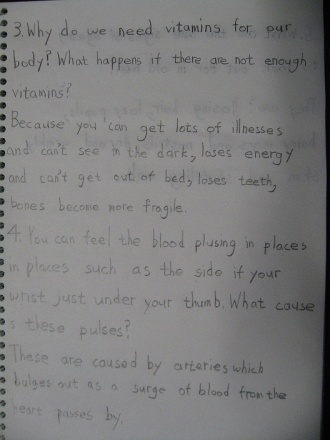 3. Why do we need vitamins for our
body? What happens if there are not enough
vitamins?
Because you can get lots of illnesses
and can't see in the dark, loses energy
and can't get out of bed, loses teeth,
bones become more fragile.
4. You can feel the blood plusing in places
in places such as the side if your
wrist just under your thumb. What cause
s these pulses?
These are caused by arteries which
bulges out as a surge of blood from the
heart passes by.